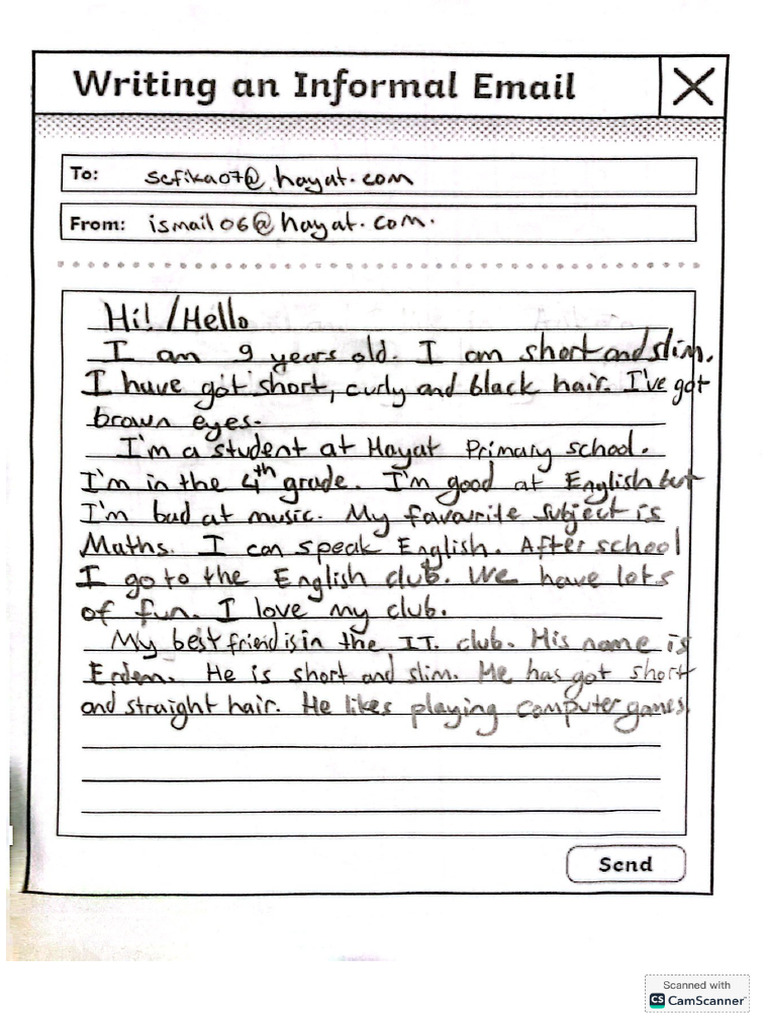 Writing an Informal Email
To: sefika07@hayat.com
From: ismail06@hayat.com.
Hi!/Hello
I am 9 years old. I am short and slim.
I have got short, curly and black hair. I've got
brown eyes.
I'm a student at Hayat Primary school.
I'm in the 4th grade. I'm good at English but
I'm bad at music. My favourite subject is
Maths. I can speak English. After school
I go to the English club. We have lots
of fun. I love my club.
My best friend is in the IT. club. His name is
Erdem. He is short and slim. He has got short
and straight hair. He likes playing computer games
Send
Scanned with
CS CamScanner